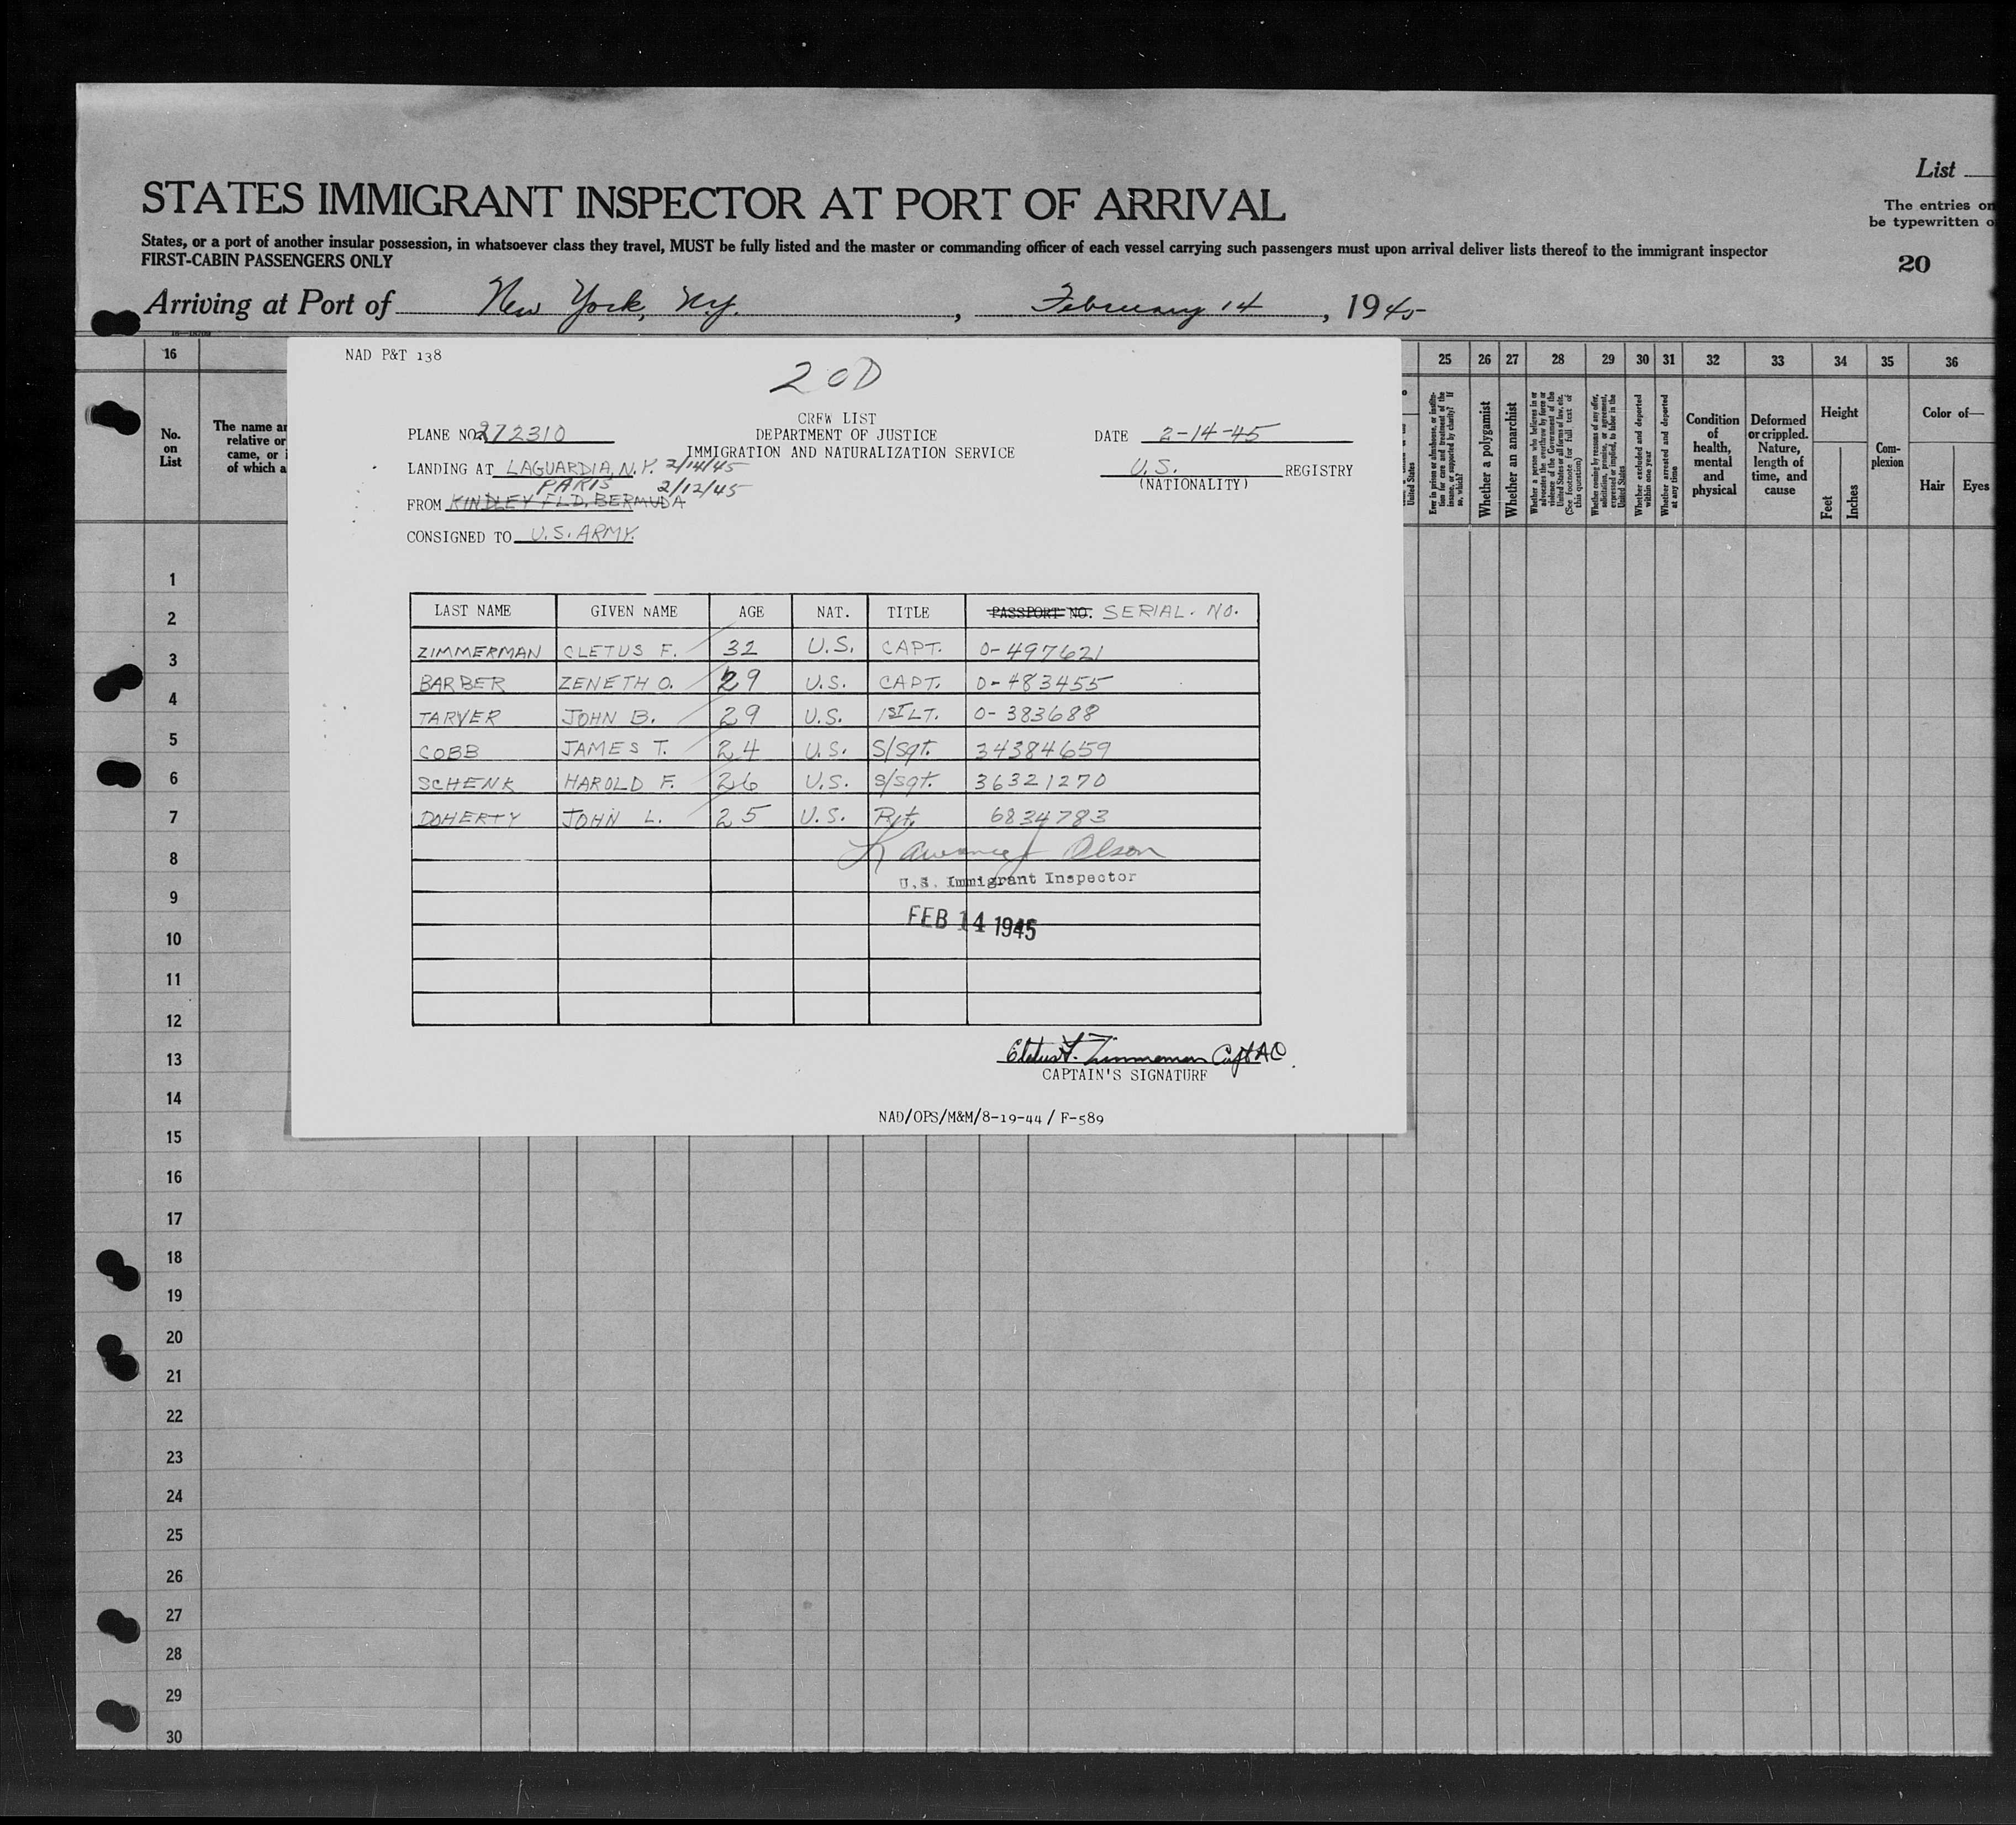 STATES IMMIGRANT INSPECTOR AT PORT OF ARRIVAL
List
The entries on
be typewritten o
States, or a port of another insular possession, in whatsoever class they travel, MUST be fully listed and the master or commanding officer of each vessel carrying such passengers must upon arrival deliver lists thereof to the immigrant inspector
FIRST-CABIN PASSENGERS ONLY
20
Arriving at Port of New York, N.Y. , February 14 , 1945
16 25 26 27 28 29 30 31 32 33 34 35 36
No. on List
The name an
relative or
came, or i
of which a
United States
Whether a polygamist
Whether an anarchist
Whether excluded and deported within one year
Whether arrested and deported at any time
Condition of health, mental and physical
Deformed or crippled. Nature, length of time, and cause
Height
Feet Inches
Com-plexion
Color of—
Hair Eyes
NAD P&T 138
20D
CREW LIST
PLANE NO. 272310 DEPARTMENT OF JUSTICE DATE 2-14-45
IMMIGRATION AND NATURALIZATION SERVICE
LANDING AT LAGUARDIA, N.Y. 2/14/45 U.S. REGISTRY
PARIS 2/12/45 (NATIONALITY)
FROM KINDLEY FLD. BERMUDA
CONSIGNED TO U.S. ARMY.
LAST NAME GIVEN NAME AGE NAT. TITLE PASSPORT NO. SERIAL. NO.
ZIMMERMAN CLETUS F. 32 U.S. CAPT. 0-497621
BARBER ZENETH O. 29 U.S. CAPT. 0-483455
TARVER JOHN B. 29 U.S. 1ST LT. 0-383688
COBB JAMES T. 24 U.S. S/Sgt. 34384659
SCHENK HAROLD F. 26 U.S. S/Sgt. 36321270
DOHERTY JOHN L. 25 U.S. Pvt. 6834783
Olson
U.S. Immigrant Inspector
FEB 14 1945
Cletus F. Zimmerman Capt AC
CAPTAIN'S SIGNATURE
NAD/OPS/M&M/8-19-44/ F-589
1
2
3
4
5
6
7
8
9
10
11
12
13
14
15
16
17
18
19
20
21
22
23
24
25
26
27
28
29
30